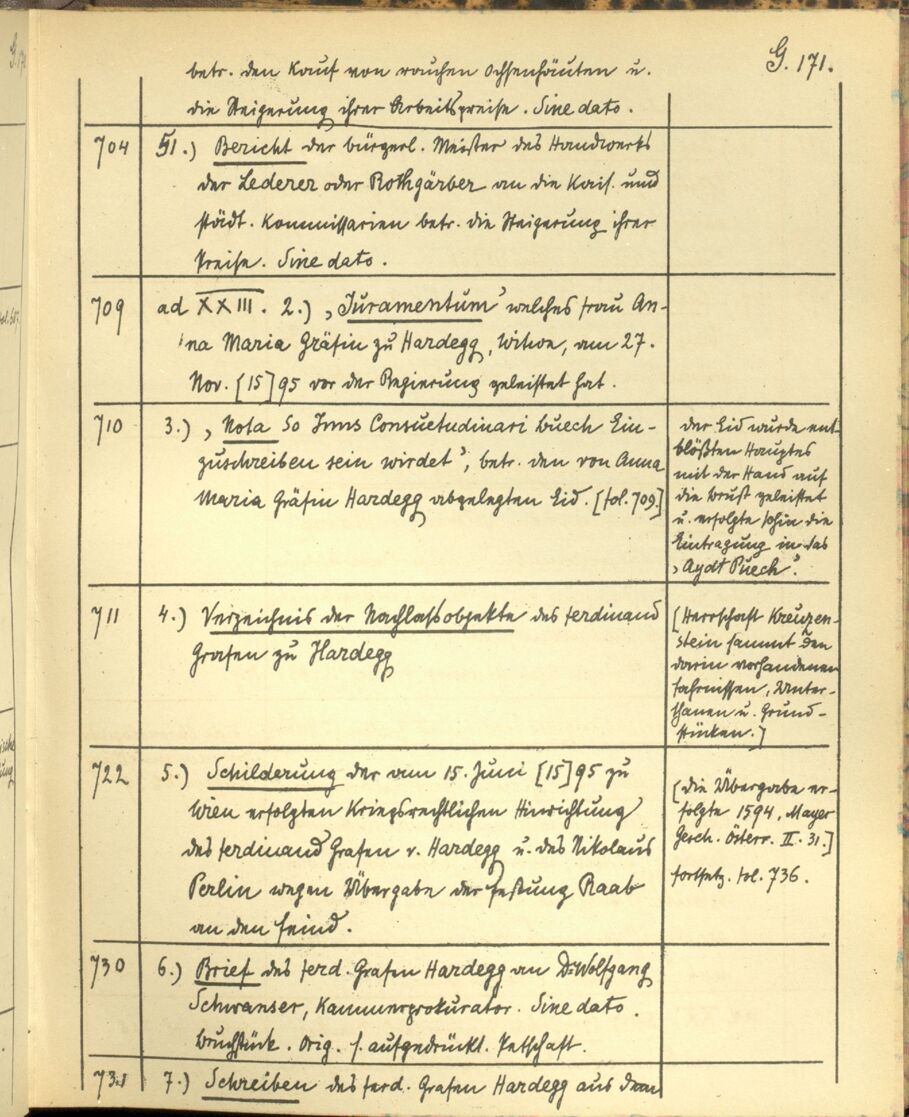 G. 171.
betr. den Kauf von rauhen Ochsenhäuten u.
die Steigerung ihrer Arbeitspreise. Sine dato.
704 51.) Bericht der bürgerl. Meister des Handwerks
der Lederer oder Rothgärber an die Kais. und
städt. Kommissarien betr. die Steigerung ihrer
Preise. Sine dato.
709 ad XXIII. 2.) „Juramentum“ welches Frau An-
na Maria Gräfin zu Hardegg, Witwe, am 27.
Nov. [15]95 vor der Regierung geleistet hat.
710 3.) „Nota So Inns Consuetudinari buech Ein-
zuschreiben sein wirdet“, betr. den von Anna
Maria Gräfin Hardegg abgelegten Eid. [fol. 709.]
der Eid wurde ent-
blößten Hauptes
mit der Hand auf
die Brust geleistet
u. erfolgte sohin die
Eintragung in das
„Aydt Puech“.
711 4.) Verzeichnis der Nachlaßobjekte des Ferdinand
Grafen zu Hardegg
[Herrschaft Kreuzen-
stein sammt den
darin vorhandenen
Fahrnissen, Unter-
thanen u. Grund-
stücken.]
722 5.) Schilderung der am 15. Juni [15]95 zu
Wien erfolgten Kriegsrechtlichen Hinrichtung
des Ferdinand Grafen v. Hardegg u. des Nikolaus
Perlin wegen Übergabe der Festung Raab
an den Feind.
[die Übergabe er-
folgte 1594, Mayer
Gesch. Österr. II. 31.]
Fortsetz. fol. 736.
730 6.) Brief des Ferd. Grafen Hardegg an Dr Wolfgang
Schwanser, Kammerprokurator. Sine dato.
Bruchstück. Orig. s. aufgedrückt. Petschaft.
731 7.) Schreiben des Ferd. Grafen Hardegg aus dem